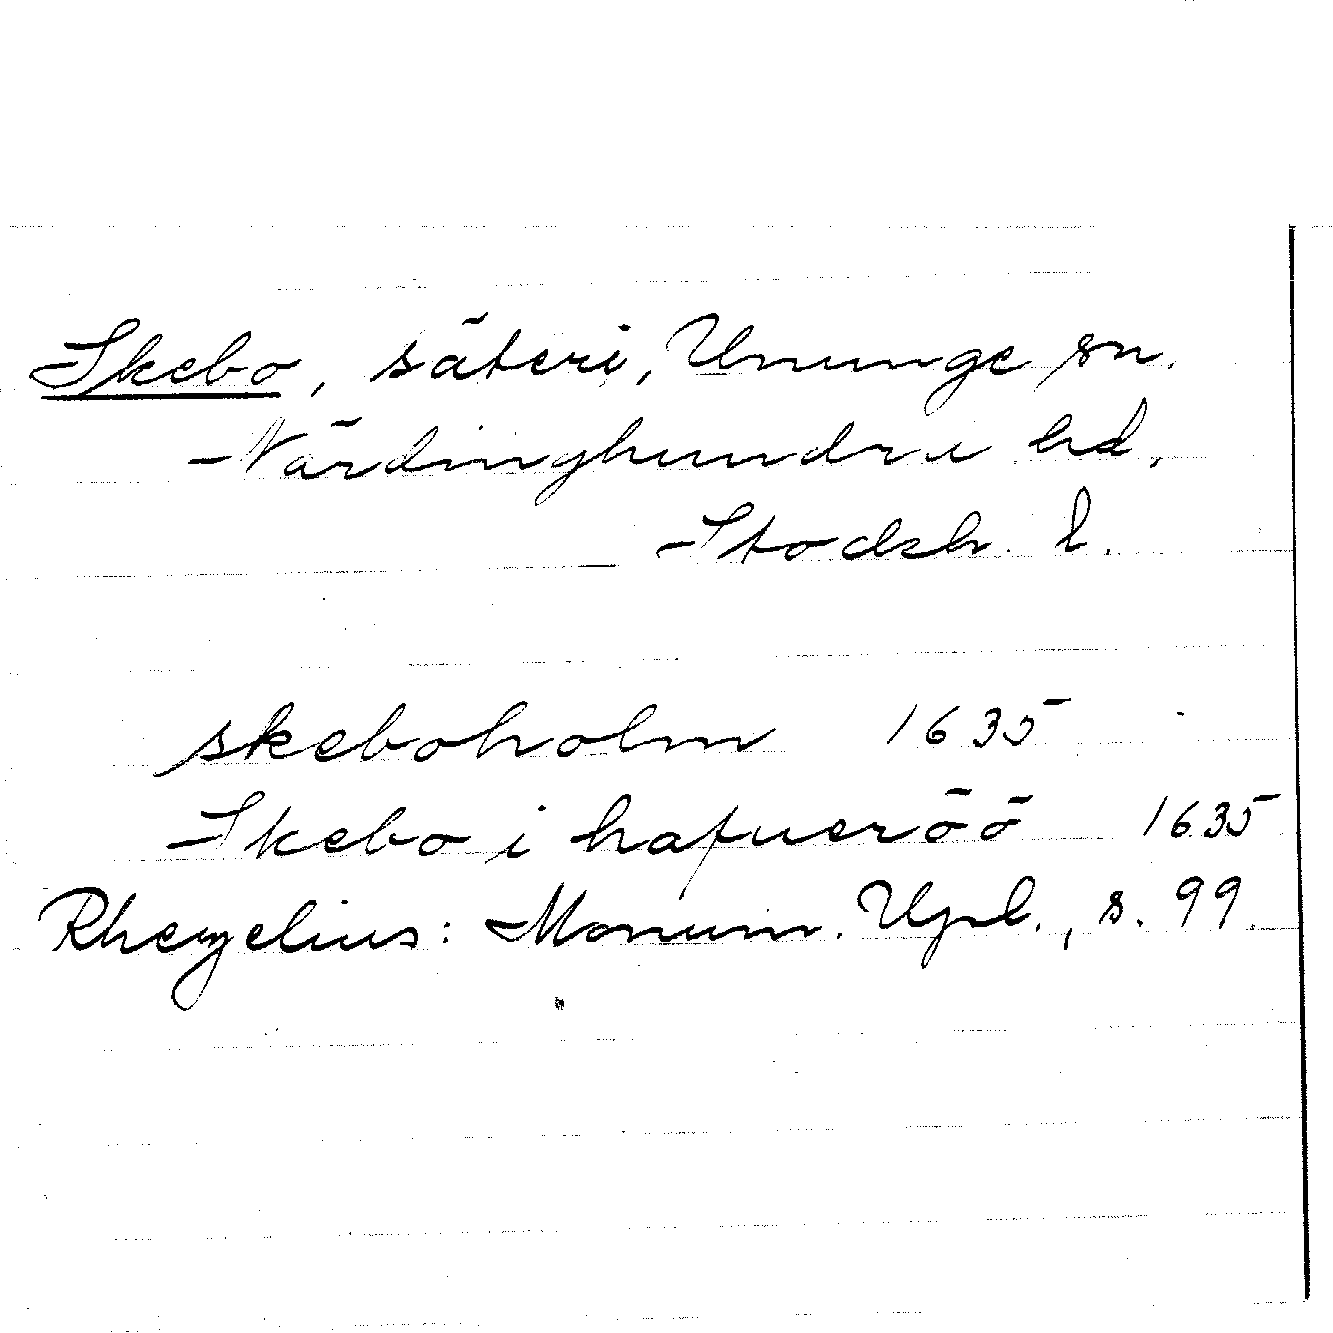 Skebo, säteri, Ununge sn.
Närdinghundra hd,
Stocksh. l.
skeboholm 1635
Skebo i hafueröö 1635
Rhezelius: Monum. Upl., s. 99.